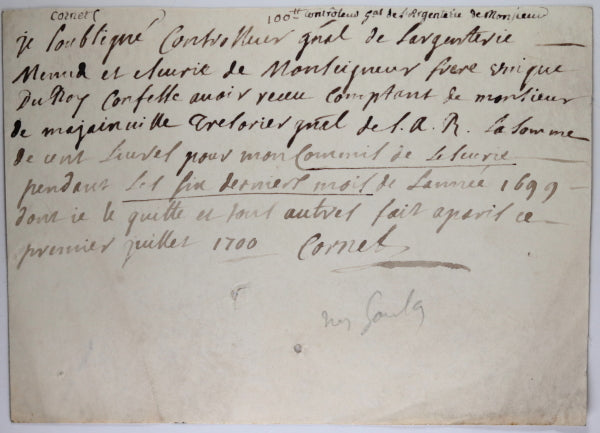 Cornet ( 100tt Controleur Gal de l'Argenterie de Monsieur
je soubsigné Controlleur gnal de Largenterie
Menus et escurie de Monseigneur frere unique
Du Roy Confesse avoir receu Comptant de monsieur
de majainville Tresorier gnal de S. A. R. La somme
de cent Livres pour mon Commis de Lescurie
pendant Les six derniers mois de Lannée 1699
dont je le quitte et tous autres fait aparis ce
premier juillet 1700 Cornet